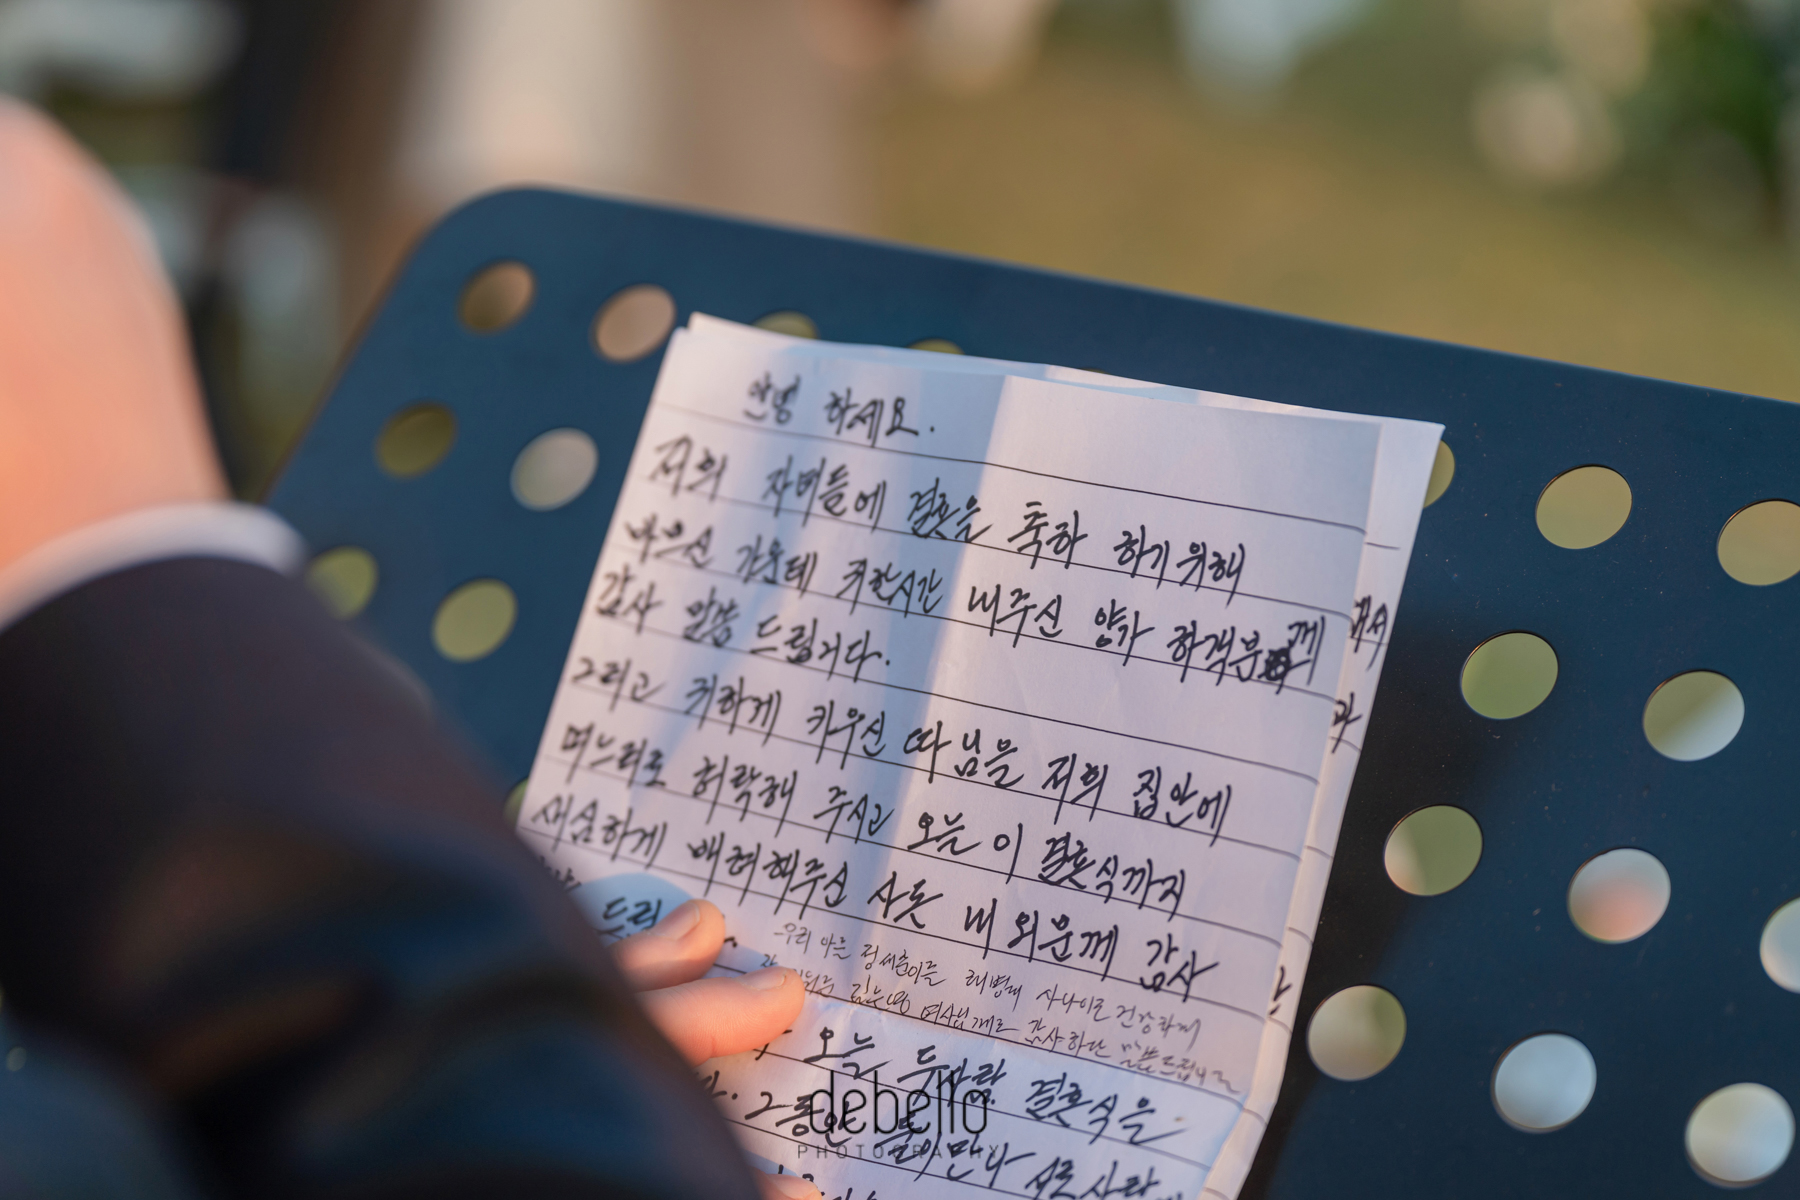 안녕 하세요.
저희 자녀들에 결혼을 축하 하기위해
바우신 가운데 귀한시간 내주신 양가 하객분께
감사 말씀 드립니다.
그리고 귀하게 키우신 따님을 저희 집안에
며느리로 허락해 주시고 오늘 이 결혼식까지
세심하게 배려해주신 사돈 내 외분께 감사
드린
우리 아들 사나이로 건강하게
여사님께도 감사하단 말씀드립니다
오늘 두사람 결혼식을
그동안 둘이만나 서로사랑
debello
PHOTOGRAPHY